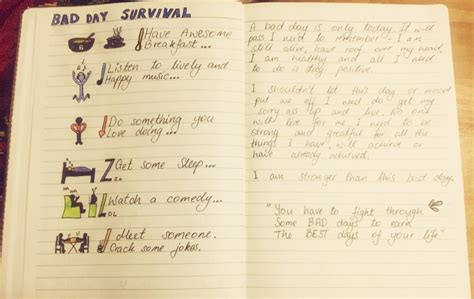 BAD DAY SURVIVAL
Have Awesome
Breakfast...
Listen to lively and
Happy music...
Do something you
Love doing...
Z Get some Sleep...
Zz
Watch a comedy...
LOL
Meet someone.
Crack some jokes.
A bad day is only today. It will
pass I need to remember - I am
still alive, have roof over my head,
I am healthy and all I need
to do is stay positive.
I shouldn't let this day or mood
put me off. I need do get my
sorry ass up and live. No one
will live for me. I need to be
strong and greatful for all the
things I have, will achieve or
have already achieved.
I am stronger than this bad day.
"You have to fight through
Some BAD days to earn
The BEST days of your life"